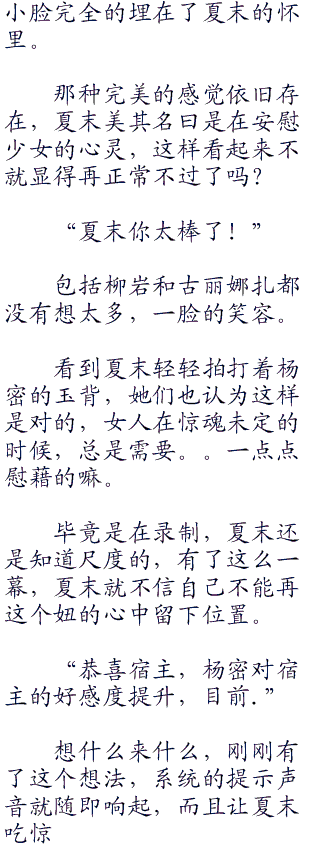 小脸完全的埋在了夏末的怀
里。
那种完美的感觉依旧存
在，夏末美其名曰是在安慰
少女的心灵，这样看起来不
就显得再正常不过了吗？
“夏末你太棒了！”
包括柳岩和古丽娜扎都
没有想太多，一脸的笑容。
看到夏末轻轻拍打着杨
密的玉背，她们也认为这样
是对的，女人在惊魂未定的
时候，总是需要。。一点点
慰藉的嘛。
毕竟是在录制，夏末还
是知道尺度的，有了这么一
幕，夏末就不信自己不能再
这个妞的心中留下位置。
“恭喜宿主，杨密对宿
主的好感度提升，目前.”
想什么来什么，刚刚有
了这个想法，系统的提示声
音就随即响起，而且让夏末
吃惊